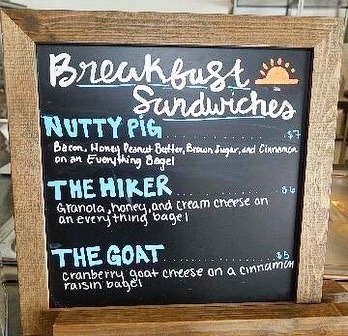 Breakfast
Sandwiches
NUTTY PIG ........ $7
Bacon, Honey Peanut Butter, Brown Sugar, and Cinnamon
on an Everything Bagel
THE HIKER ........ $6
Granola, honey, and cream cheese on
an everything bagel
THE GOAT ........ $5
cranberry goat cheese on a cinnamon
raisin bagel